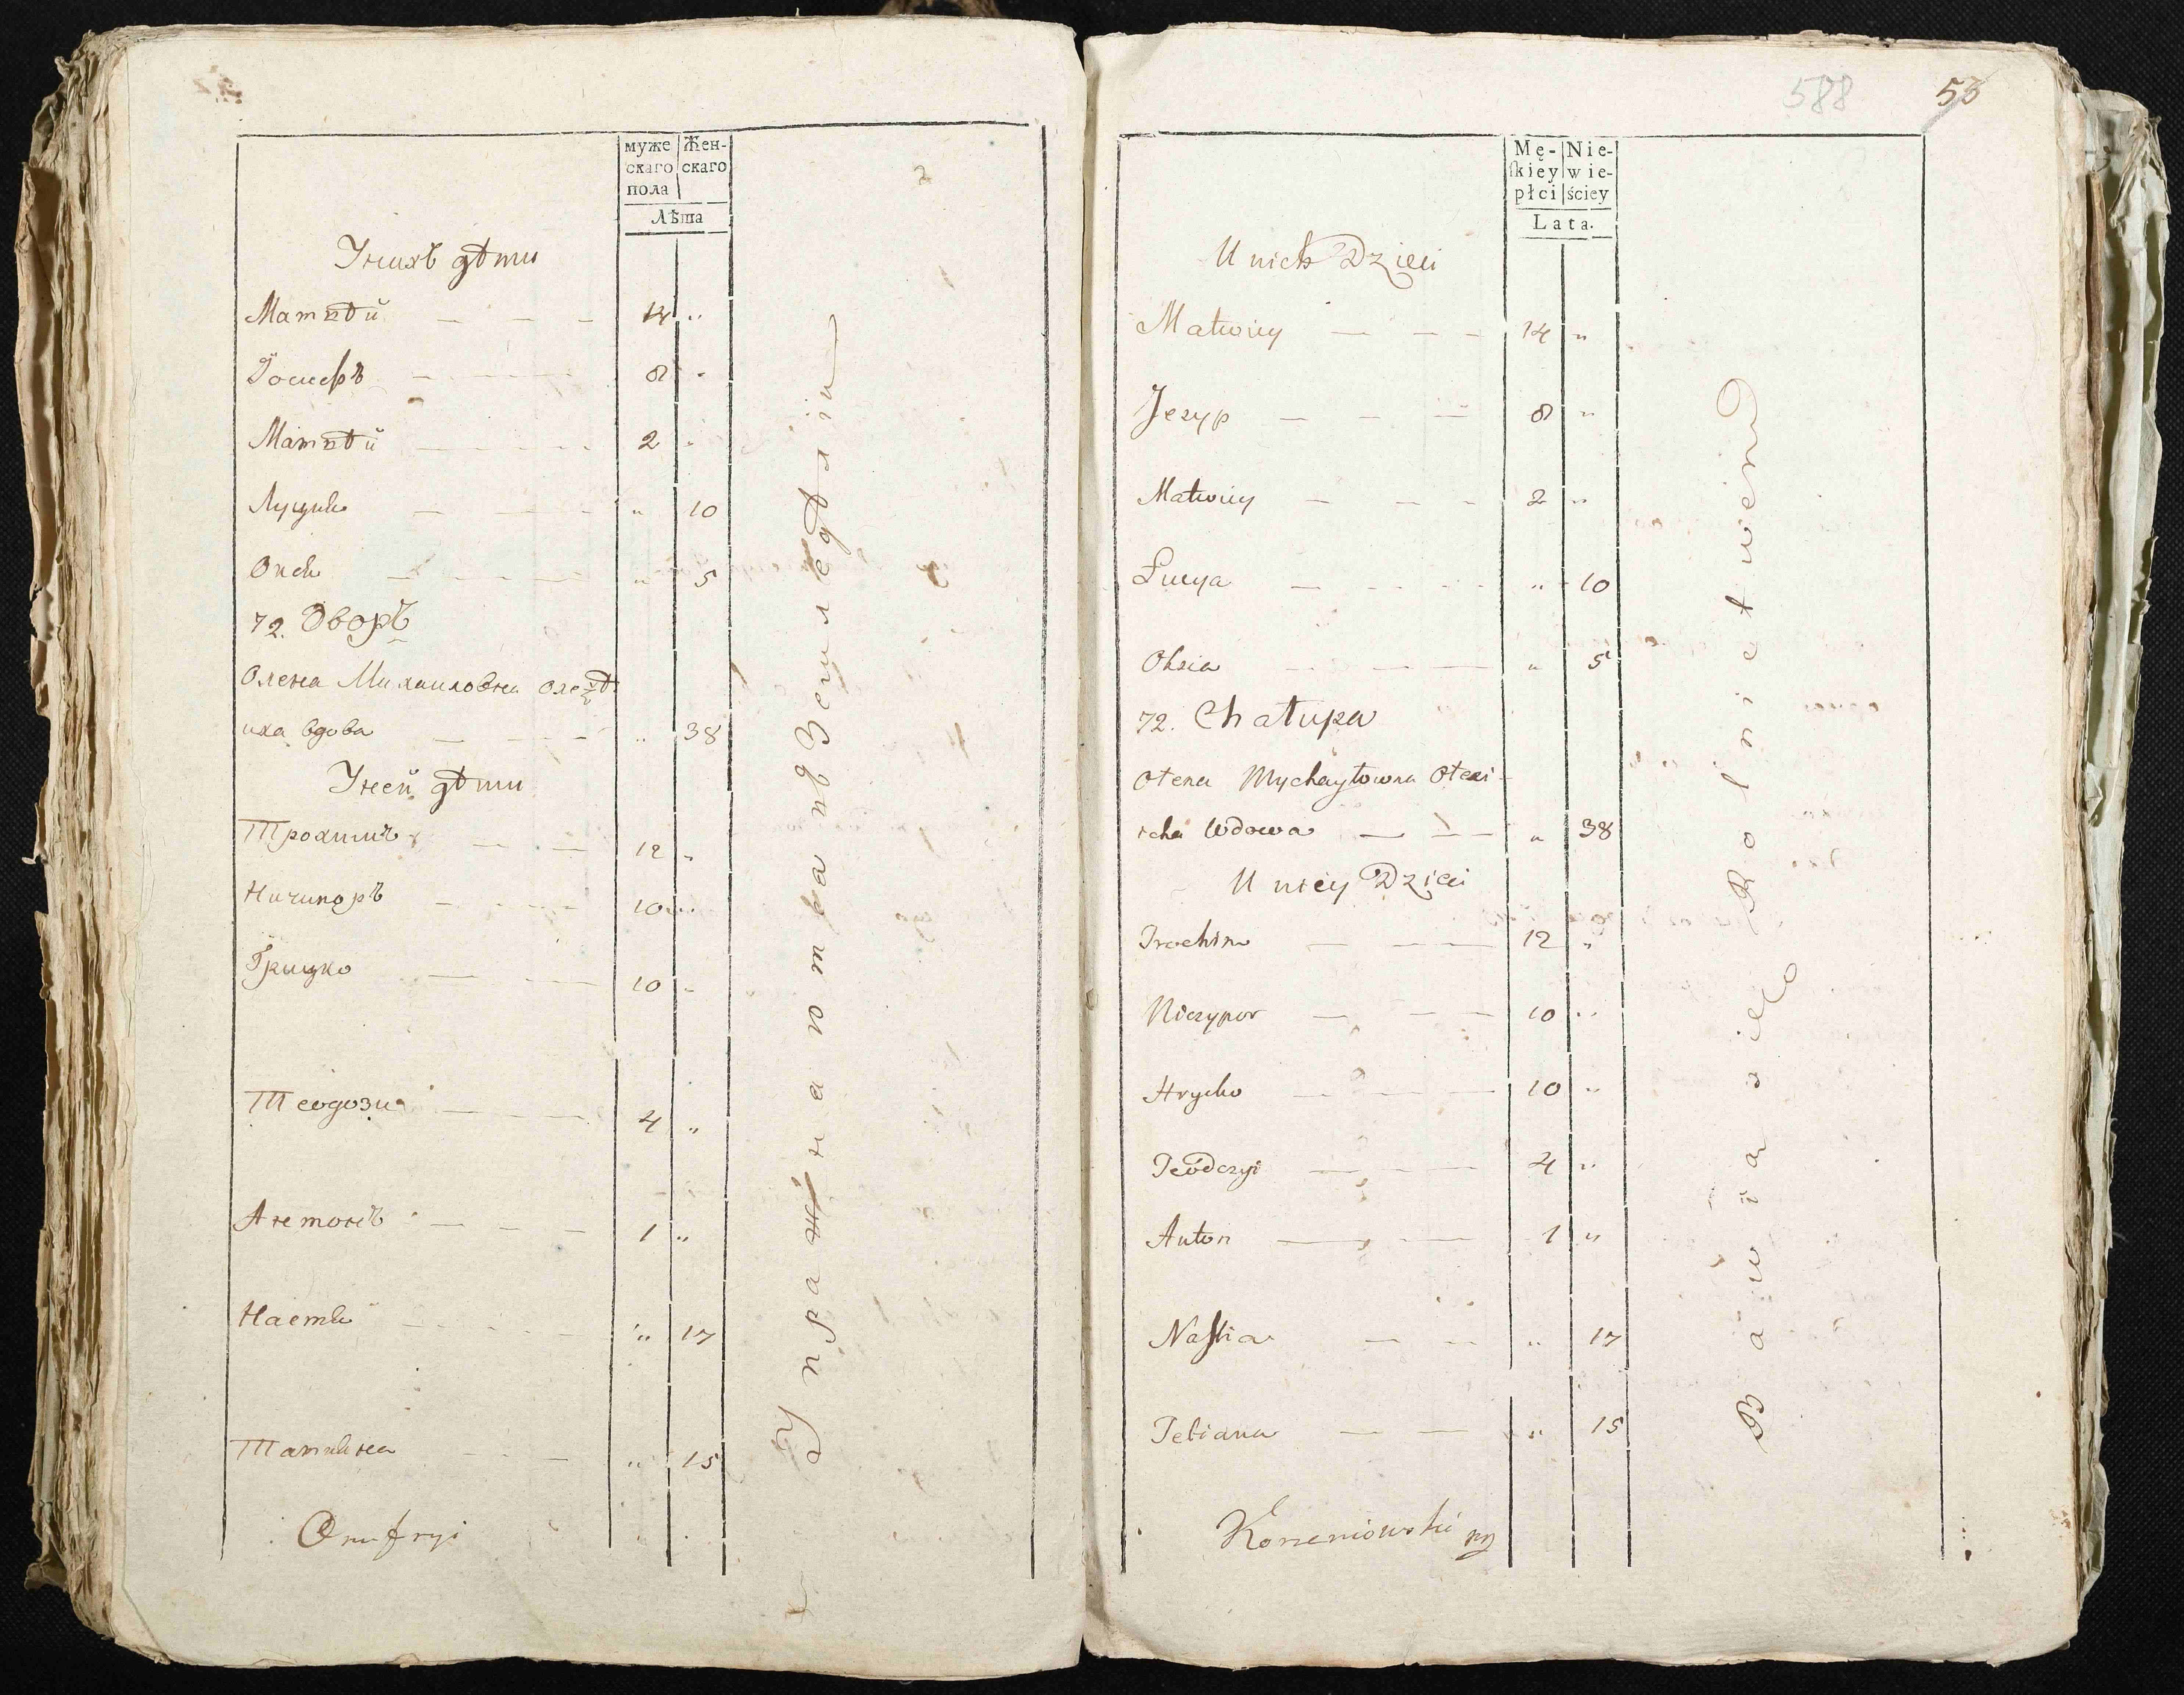 муже Жен-
скаго скаго
пола
Лѣта
Унихъ дѣти
Матвѣй — — — 14 „
Іосифъ — — — 8 „
Матвѣй — — — 2 „
Луция — — — „ 10
Окся — — — „ 5
72. Дворъ
Олена Михаиловна Олексѣ
иха вдова — — — „ 38
Уней дѣти
Трохимъ — — 12 „
Ничипоръ — — — 10 „
Грицко — — — 10 „
Теодозий — — — 4 „
Антонъ — — — 1 „
Настя — — — „ 17
Татияна — — — „ 15
Onufryi
Упражнаютса въ Земледѣліи
588 58
Mę- Nie-
ſkiey wie-
płci ściey
Lata.
U nich Dzieci
Matwiey — — — 14 „
Jezyp — — — 8 „
Matwiey — — — 2 „
Łucya — — — „ 10
Oksia — — — „ 5
72. Chałupa
Ołena Mychayłowna Ołexi-
icha Wdowa — — — „ 38
U niey Dzieci
Trochim — — — 12 „
Niczypor — — — 10 „
Hrycko — — — 10 „
Teodozyi — — — 4 „
Anton — — — 1 „
Naſtia — — „ 17
Tetiana — — „ 15
Korzeniowski
Bawią się Rolnictwem